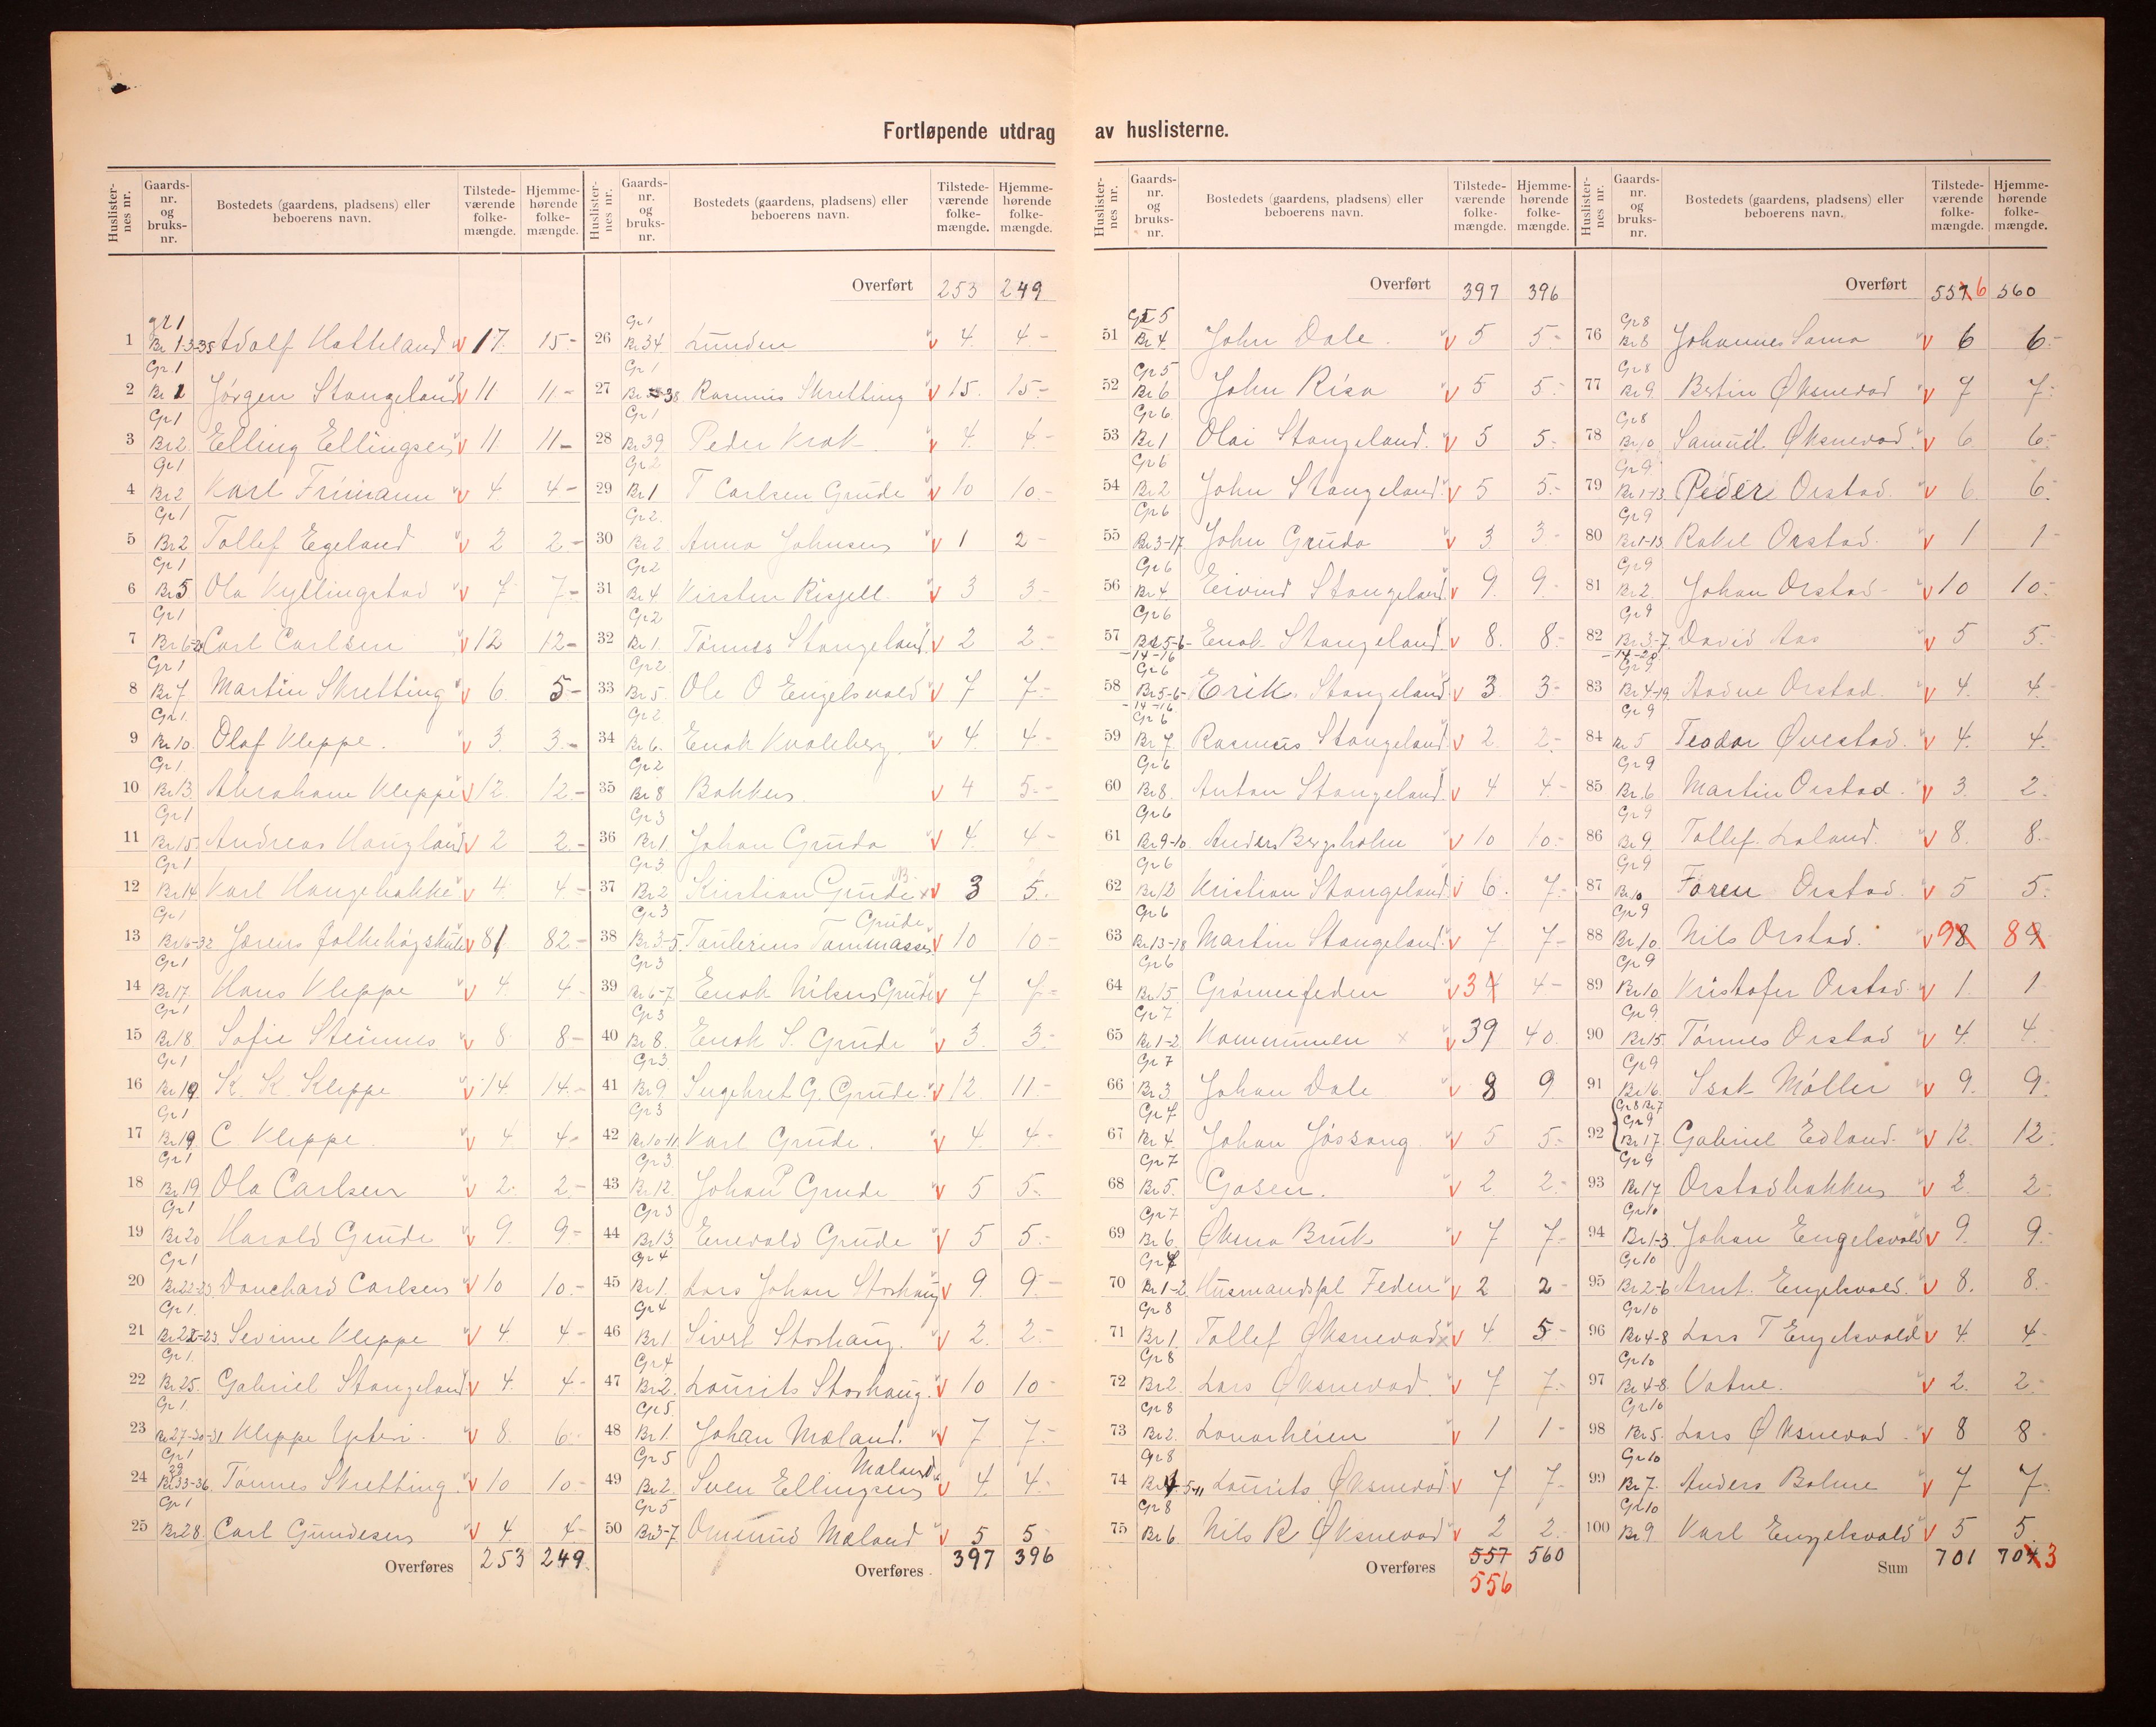 Fortløpende utdrag av huslisterne.
Huslisternes nr. Gaards-nr. og bruks-nr. Bostedets (gaardens, pladsens) eller beboerens navn. Tilstedeværende folkemængde. Hjemmehørende folkemængde.
gr 1
1 Br 1-3-35 Adolf Hatteland 17. 15.-
Gr. 1
2 Br 1 Jørgen Stangeland 11 11-
Gr 1
3 Br 2. Elling Ellingsen 11 11-
Gr 1
4 Br 2 Karl Frimann 4 4-
Gr 1
5 Br 2 Tollef Egeland 2 2.-
Gr 1
6 Br 5 Ola Kyllingstad 7 7-
Gr 1
7 Carl Carlsen 12 12-
Gr 1
8 Br 7. Martin Skretting 6. 5-
Gr 1.
9 Br 10. Olaf Kleppe. 3. 3.-
Gr 1.
10 Br 13. Abraham Kleppe 12. 12.-
Gr 1
11 Br 15. Andreas Haugland 2 2.-
Gr 1
12 Br 14 Karl Haugebakke 4. 4.-
Gr 1
13 Br 16-32 Jærens folkehögskule 81 82-
Gr 1
14 Br 17. Hans Kleppe 4 4-
Gr 1
15 Br 18. Sofie Steinnes 8 8-
Gr 1
16 Br 19. K. K. Kleppe 14. 14.-
Gr 1
17 Br 19. C. Kleppe. 4 4-
Gr 1
18 Br 19 Ola Carlsen 2. 2.-
Gr 1
19 Br 20 Harald Grude 9. 9-
Gr 1
20 Br 22-23 Danchard Carlsen 10 10.-
Gr 1.
21 Br 22-23. Sevrine Kleppe 4. 4-
Gr 1.
22 Br 25. Gabriel Stangeland 4. 4-
Gr 1
23 Br 27-30-31 Kleppe 8. 6-
Gr 1
29
24 Br 33-36 Tønnes Skretting. 10 10.-
Gr 1
25 Br 28. Carl Gundesen 4 4-
Overføres 253 249.
Huslisternes nr. Gaards-nr. og bruks-nr. Bostedets (gaardens, pladsens) eller beboerens navn. Tilstedeværende folkemængde. Hjemmehørende folkemængde.
Overført 253 249
Gr 1
26 Br 34 Lunden 4. 4-
Gr 1
27 38 Rasmus Skretting 15. 15.-
Gr 1
28 Br 39. Peder Krak 4. 4-
Gr 2
29 Br 1 T Carlsen Grude 10 10.-
Gr 2.
30 Br 2 Anna Johnsen 1 2-
Gr 2
31 Br 4 Kirsten Risjell. 3 3-
Gr 2
32 Br 1. Tønnes Stangeland 2 2.-
Gr 2
33 Br 5. Ole O Engelsvold 7 7.-
Gr 2
34 Br 6. Enok Kvaleberg. 4. 4-
Gr 2
35 Br 8 Bakken. 4 5.-
Gr 3
36 Br 1. Johan Gruda 4. 4-
Gr 3
37 Br 2 Kristian Grude x 3 5.
Gr 3 Grude
38 Br 3-5. Taulerius Tommassen 10 10-
Gr 3
39 Br 6-7 Enok Nilsen Grude 7 7-
Gr 3
40 Br 8. Enok S. Grude 3. 3.-
Gr 3.
41 Br 9 Ingebret G. Grude. 12. 11.-
Gr 3
42 Br 10-11. Karl Grude. 4. 4-
Gr 3.
43 Br 12. Johan P Grude 5 5.-
Gr 3
44 Br 13 Enevald Grude 5 5.-
Gr 4
45 Br 1. Lars Johan Storhaug 9. 9.-
Gr 4
46 Br 1 Sivert Storhaug. 2. 2.-
Gr 4.
47 Br 2. Laurits Storhaug. 10 10-
Gr 5.
48 Br 1. Johan Mæland. 7 7.-
Gr 5 Mæland
49 Br 2. Sven Ellingsen 4. 4.-
Gr 5
50 Br 3-7. Ommund Mæland 5 5
Overføres 397 396
Huslisternes nr. Gaards-nr. og bruks-nr. Bostedets (gaardens, pladsens) eller beboerens navn. Tilstedeværende folkemængde. Hjemmehørende folkemængde.
Overført 397 396
Gr 5
51 Br 4. John Dale. 5 5.-
Gr 5
52 Br 6 John Risa 5 5.-
Gr 6.
53 Br 1 Olai Stangeland. 5 5-
Gr 6
54 Br 2 John Stangeland. 5 5.-
Gr 6
55 Br 3-17 John Gruda 3 3.-
Gr 6
56 Br 4. Eivind Stangeland. 9. 9.-
Gr 6
57 Br 5-6- Enok Stangeland. 8. 8.-
-14-16
Gr 6
58 Br 5-6- Erik. Stangeland. 3. 3-
-14-16
Gr 6
59 Br 7. Rasmus Stangeland. 2. 2.-
Gr 6
60 Br 8. Anton Stangeland. 4 4.-
Gr 6
61 Br 9-10. Anders Bergsholm 10 10.-
Gr 6
62 Br 12 Kristian Stangeland. 6. 7.-
Gr 6
63 Br 13-18 Martin Stangeland. 7 7-
Gr 6
64 Br 15. 34 4-
Gr 7
65 Br 1-2 Kommunen x 39 40.
Gr 7
66 Br 3. Johan Dale 8 9
Gr 7
67 Br 4. Johan Jössang 5 5.-
Gr 7
68 Br 5. Gasen. 2. 2.-
Gr 7
69 Br 6. Øksna Bruk 7 7-
Gr 7
70 Br 1-2 Husmandspl Feden 2 2-
Gr 8
71 Br 1. Tollef Øksnevad x 4. 5-
Gr 8
72 Br 2. Lars Øksnevad. 7 7.-
Gr 8
73 Br 2. Lanarheien 1 1-
Gr 8
74 5-11 Laurits Øksnevad. 7 7-
Gr 8
75 Br 6. Nils R Øksnevad 2 2.
Overføres 557 560
556
Huslisternes nr. Gaards-nr. og bruks-nr. Bostedets (gaardens, pladsens) eller beboerens navn. Tilstedeværende folkemængde. Hjemmehørende folkemængde.
Overført 557 6 560
Gr 8
76 Br 8 Johannes Soma 6 6.-
Gr 8
77 Br 9. Bertin Øksnevad 7 7.-
Gr 8
78 Br 10 Samuel Øksnevad. 6 6-
Gr 9
79 Br 1-13 Peder Orstad. 6. 6.
Gr 9
80 Br 1-13. Rakel Orstad. 1 1-
Gr 9
81 Br 2. Johan Orstad- 10 10.-
Gr 9
82 Br 3-7. David Aas 5 5.
-14-20
Gr 9.
83 Br 4-19. Aadne Orstad. 4. 4.-
Gr 9
84 Br 5 Teodor Øvestad. 4. 4.
Gr 9
85 Br 6 Martin Orstad. 3. 2.
Gr 9
86 Br 9. Tollef Laland. 8. 8.-
Gr 9
87 Br 10 Søren Orstad. 5 5.-
Gr 9
88 Br 10. Nils Orstad. 98 89
Gr 9
89 Br 10. Kristofer Orstad. 1. 1
Gr 9.
90 Br 15. Tønnes Orstad 4. 4.
Gr 9
91 Br 16. Isak Möller 9. 9.
Gr 8 Br 7
Gr 9
92 Br 17. Gabriel Edland. 12. 12.
Gr 9
93 Br 17 Orstadbakken 2. 2-
Gr 10
94 Br 1-3. Johan Engelsvold 9. 9.-
Gr 10
95 Br 2-6 Arnt. Engelsvold. 8. 8.-
Gr 10
96 Br 4-8 Lars T Engelsvold 4. 4-
Gr 10
97 Br 4-8. Vatne. 2. 2.-
Gr 10
98 Br 5. Lars Øksnevad 8 8-
Gr 10
99 Br 7. Anders Bolme 7 7-
Gr 10
100 Br 9 Karl Engelsvold 5 5.
Sum 701 704 3